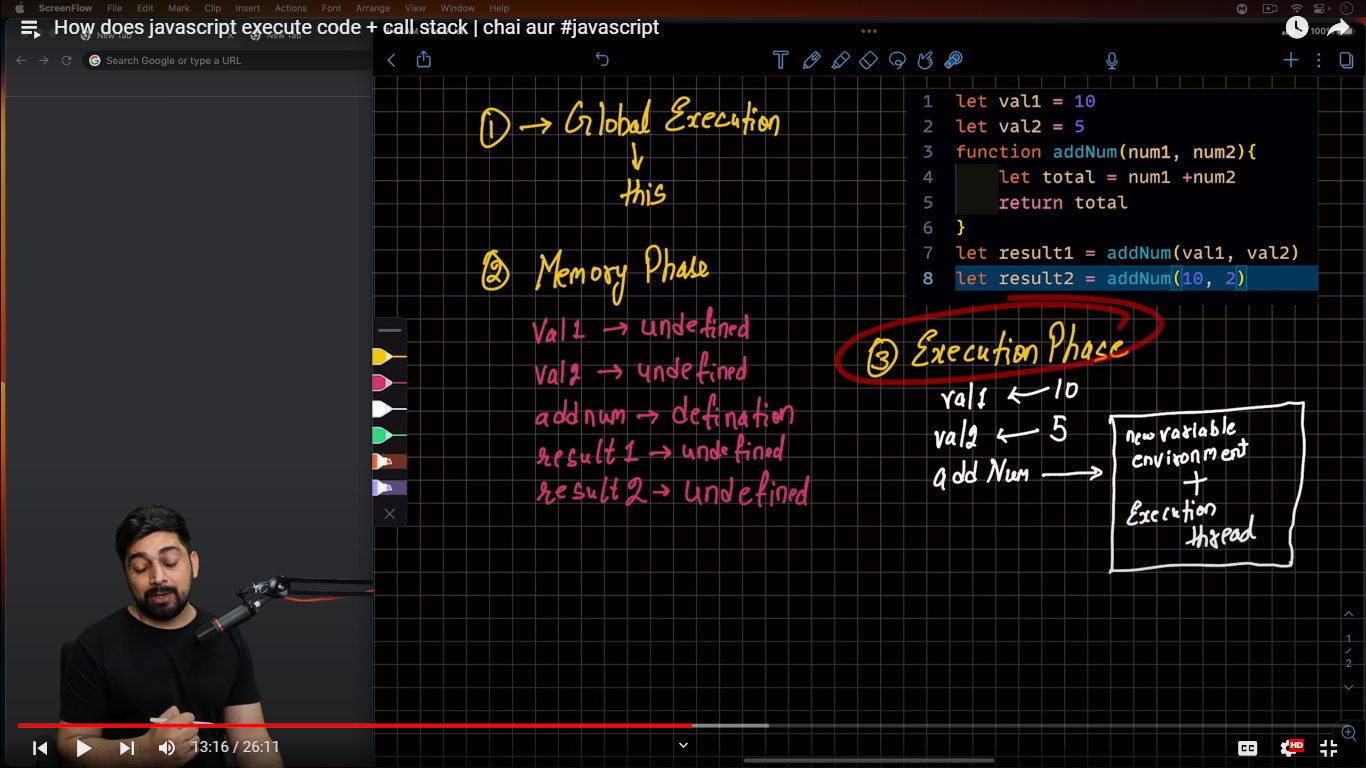 ScreenFlow File Edit Mark Clip Insert Actions Font Arrange View Window Help
How does javascript execute code + call stack | chai aur #javascript
New Tab
New Tab
100%
Search Google or type a URL
① → Global Execution
↓
this
② Memory Phase
Val1 → undefined
val2 → undefined
addnum → defination
result1 → undefined
result2 → undefined
1 let val1 = 10
2 let val2 = 5
3 function addNum(num1, num2){
4 let total = num1 +num2
5 return total
6 }
7 let result1 = addNum(val1, val2)
8 let result2 = addNum(10, 2)
③ Execution Phase
val1 ← 10
val2 ← 5
add Num →
new variable
environment
+
Execution
thread
1
/
2
13:16 / 26:11
CC
HD